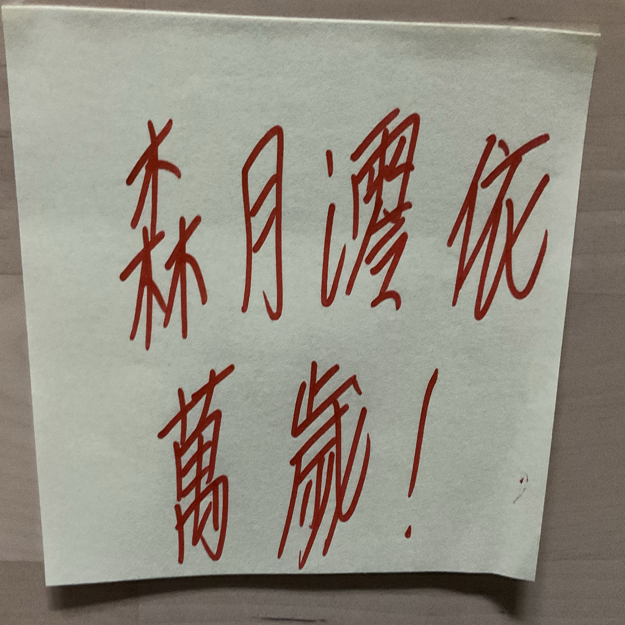 森月澐依
萬歲!